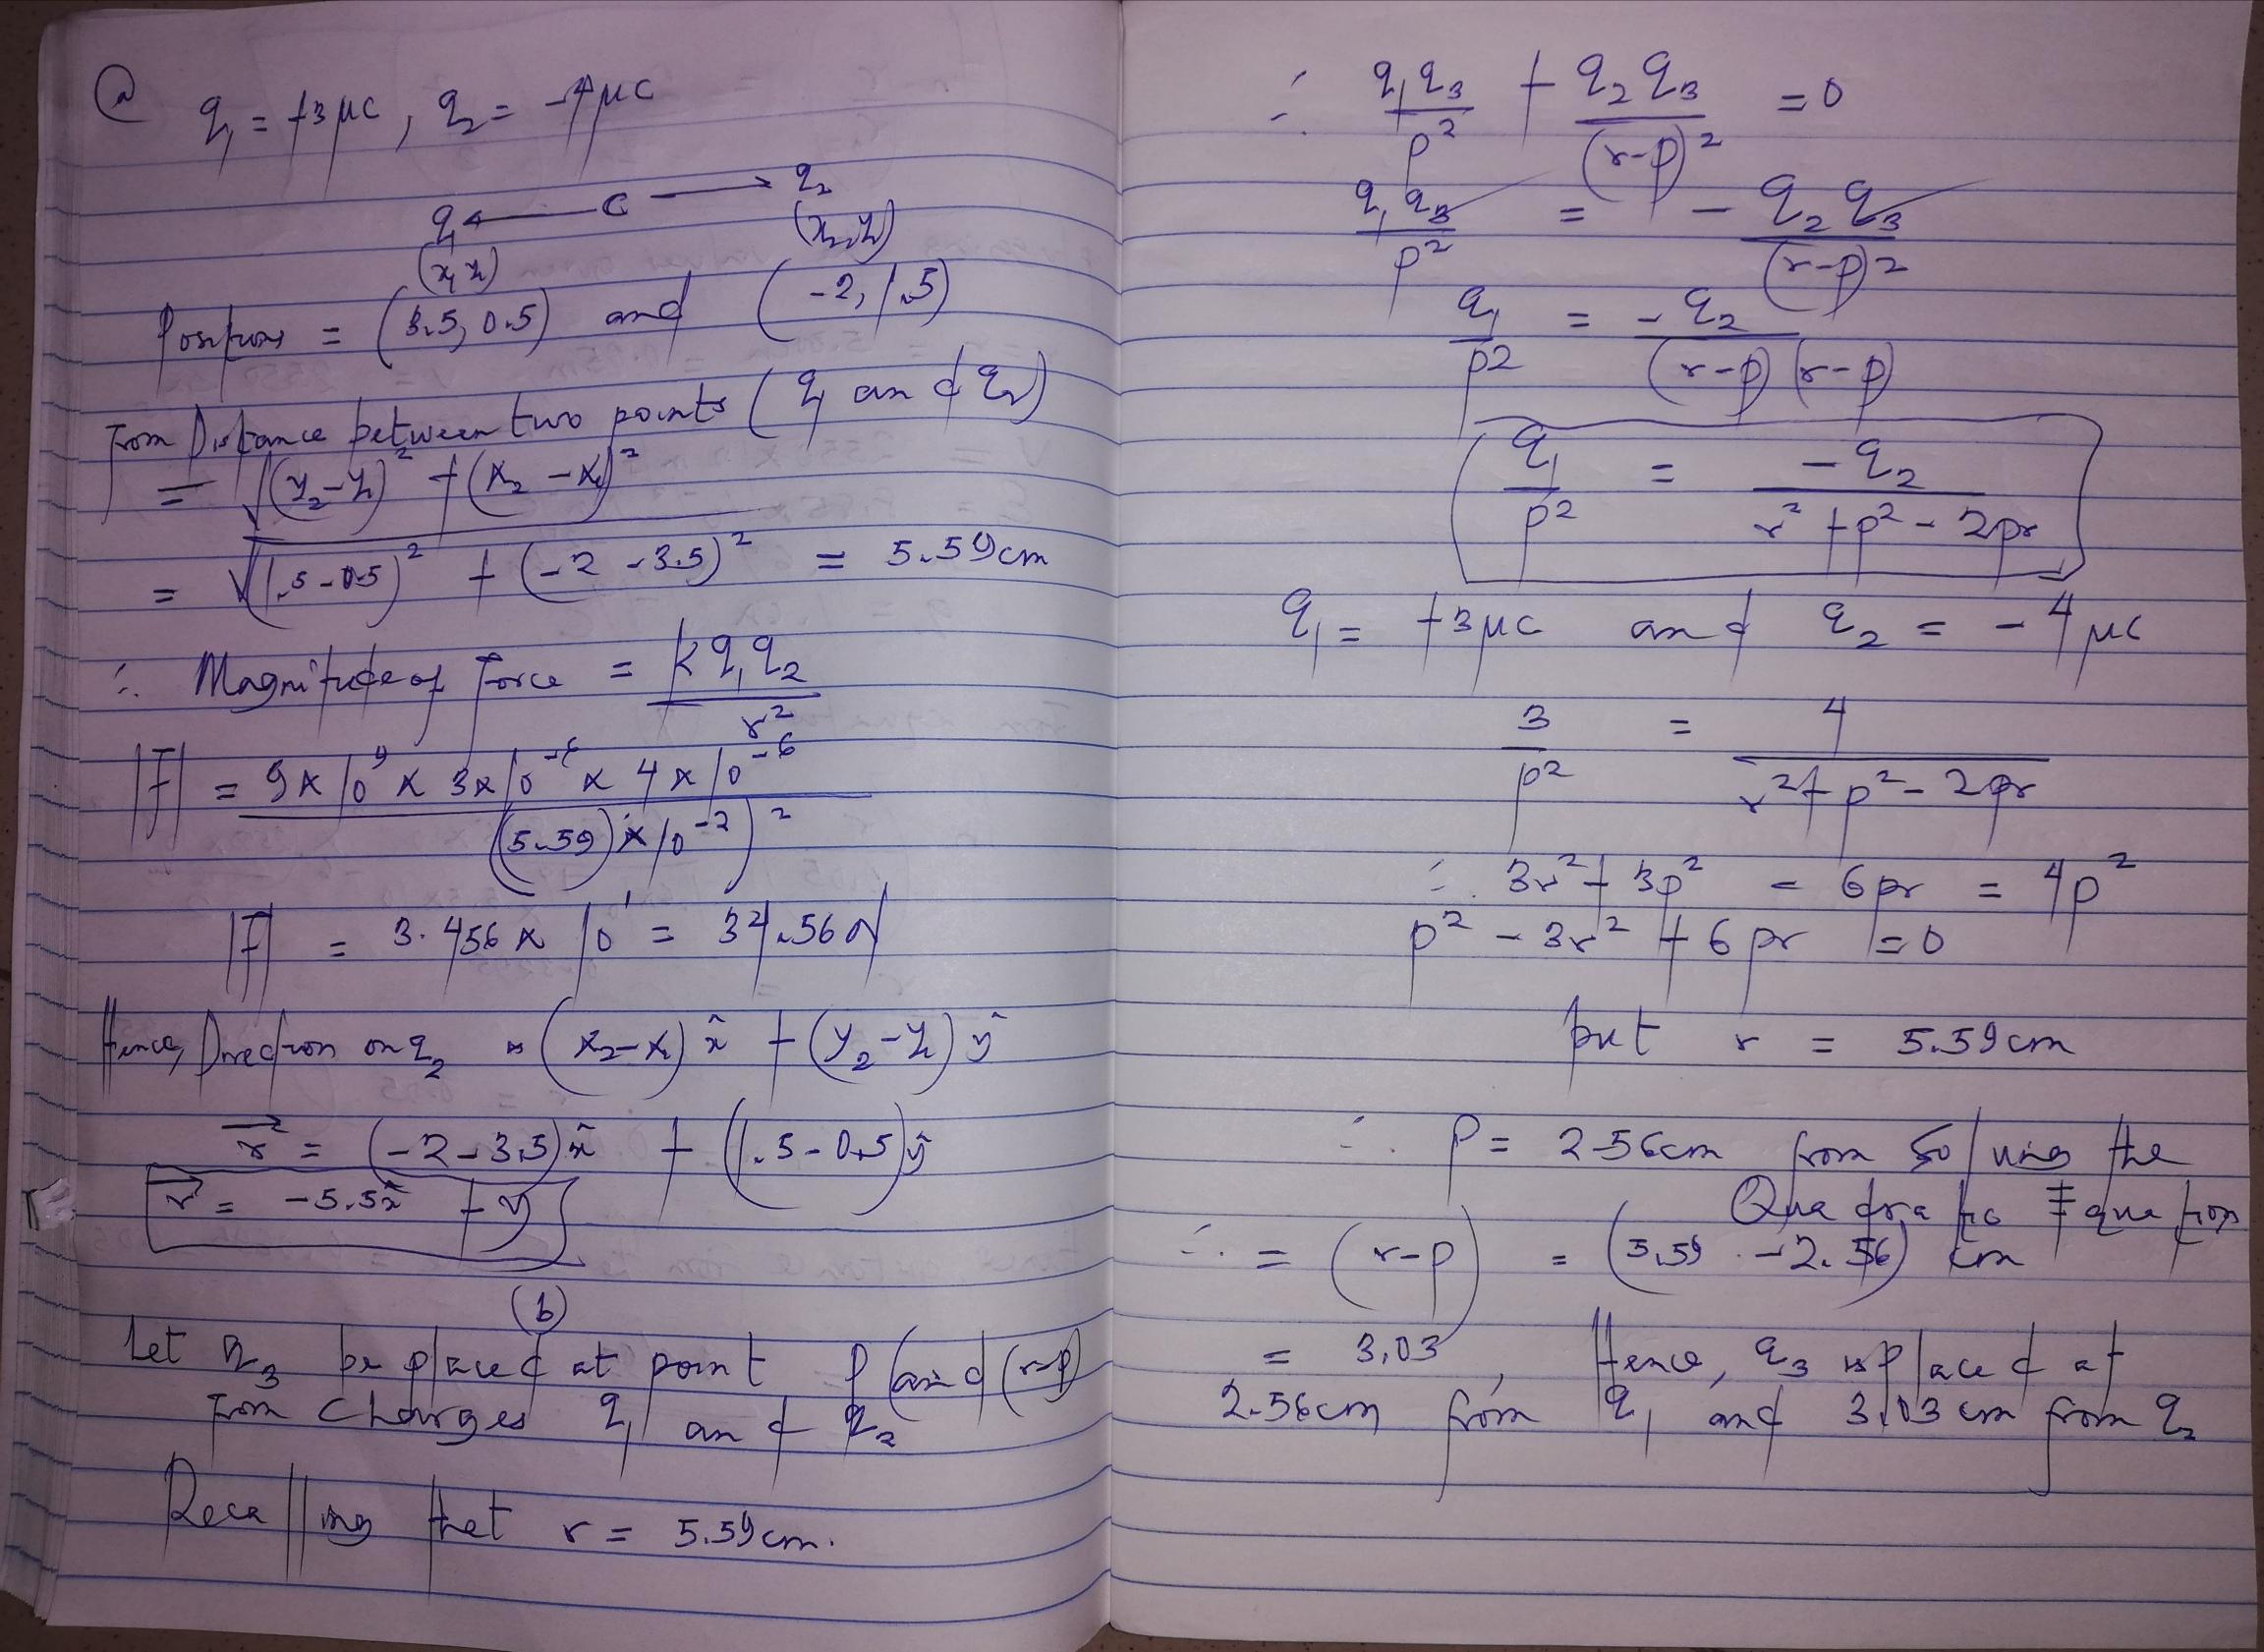 (a) q₁ = +3μC, q₂ = -4μC
q₁ ← C → q₂
(x₁ y₁) (x₂, y₂)
Positions = (3.5, 0.5) and (-2, 1.5)
From Distance between two points (q₁ and q₂)
= √(y₂-y₁)² + (x₂-x₁)²
= √(1.5-0.5)² + (-2-3.5)² = 5.59cm
∴ Magnitude of Force = kq₁q₂/r²
|F| = 9x10⁹ x 3x10⁻⁶ x 4x10⁻⁶ / (5.59) x10⁻²)²
|F| = 3.456 x 10¹ = 34.56N
Hence, Direction on q₂ is (x₂-x₁) x̂ + (y₂-y₁) ŷ
r⃗ = (-2-3.5)x̂ + (1.5-0.5)ŷ
r⃗ = -5.5x̂ + ŷ
(b)
Let q₃ be placed at point P (and (r-p)
from charges q₁ and q₂
Recalling that r = 5.59cm.
∴ q₁q₃/p² + q₂q₃/(r-p)² = 0
q₁q₃/p² = - q₂q₃/(r-p)2
q₁/p2 = -q₂/(r-p)(r-p)
q₁/p² = -q₂/r²+p²-2pr
q₁ = +3μC and q₂ = -4μC
3/p² = 4/r²+p²-2pr
∴ 3r²+3p² - 6pr = 4p²
p² - 3r² + 6pr = 0
put r = 5.59cm
∴ P = 2.56cm from solving the
Quadratic Equation
∴ = (r-p) = (5.59 - 2.56) cm
= 3.03, Hence, q₃ is placed at
2.56cm from q₁ and 3.03cm from q₂